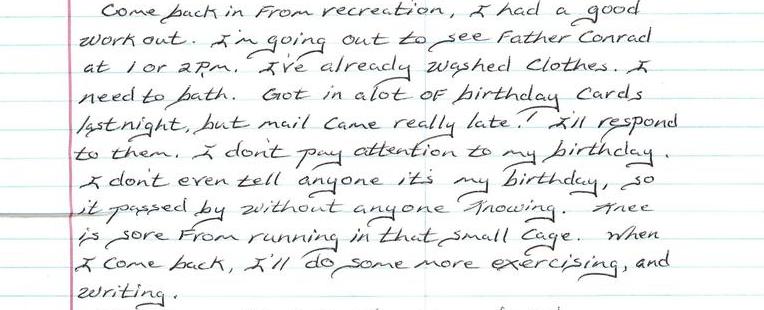 Come back in From recreation, I had a good
work out. I'm going out to see Father Conrad
at 1 or 2 Pm. I've already washed Clothes. I
need to bath. Got in alot OF birthday Cards
last night, but mail Came really late! I'll respond
to them. I don't pay attention to my birthday.
I don't even tell anyone it's my birthday, so
it passed by without anyone Knowing. Knee
is sore From running in that small Cage. When
I Come back, I'll do some more exercising, and
writing.